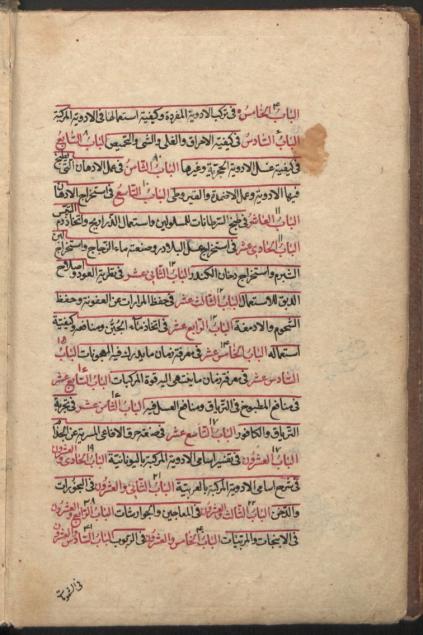 الباب الخامس في تركيب الادوية المفردة وكيفية استعمالها في الادوية المركبة
الباب السادس في كيفية الاحراق والغلي والشي والتحميص الباب السابع
في كيفية غسل الادوية الحجرية وغيرها الباب الثامن في عمل الادهان التي تطبخ
فيها الادوية وعمل الاضمدة والقيروطي الباب التاسع في استخراج الادهان
الباب العاشر في طبخ السرطانات للمسلولين واستعمال الذراريح واتخاذ دم
الباب الحادي عشر في استخراج عسل البلادر وصنعة ماء الزجاج واستخراج
الشيرم واستخراج دخان الكندر الباب الثاني عشر في تطرية العود واصلاح
الدبق للاستعمال الباب الثالث عشر في حفظ المرارات من العفونة وحفظ
الشحوم والادمغة الباب الرابع عشر في اتخاذ ماء الجبن ومنافعه وكيفية
استعماله الباب الخامس عشر في معرفة زمان ما يدرك فيه المعجونات الباب
السادس عشر في معرفة زمان ما ينتهي اليه قوة المركبات الباب السابع عشر
في منافع المطبوخ في الترياق ومنافع العسل فيه الباب الثامن عشر في تجربة
الترياق والكافور الباب التاسع عشر في صفة حرق الافاعي
الباب العشرون في تفسير اسامي الادوية المركبة باليونانية الباب الحادي والعشرون
في شرح اسامي الادوية المركبة بالعربية الباب الثاني والعشرون في البخورات
الباب الثالث والعشرون في المعاجين والجوارشات الباب الرابع والعشرون
في الانبجات والمربيات الباب الخامس والعشرون في الربوب الباب السادس والعشرون